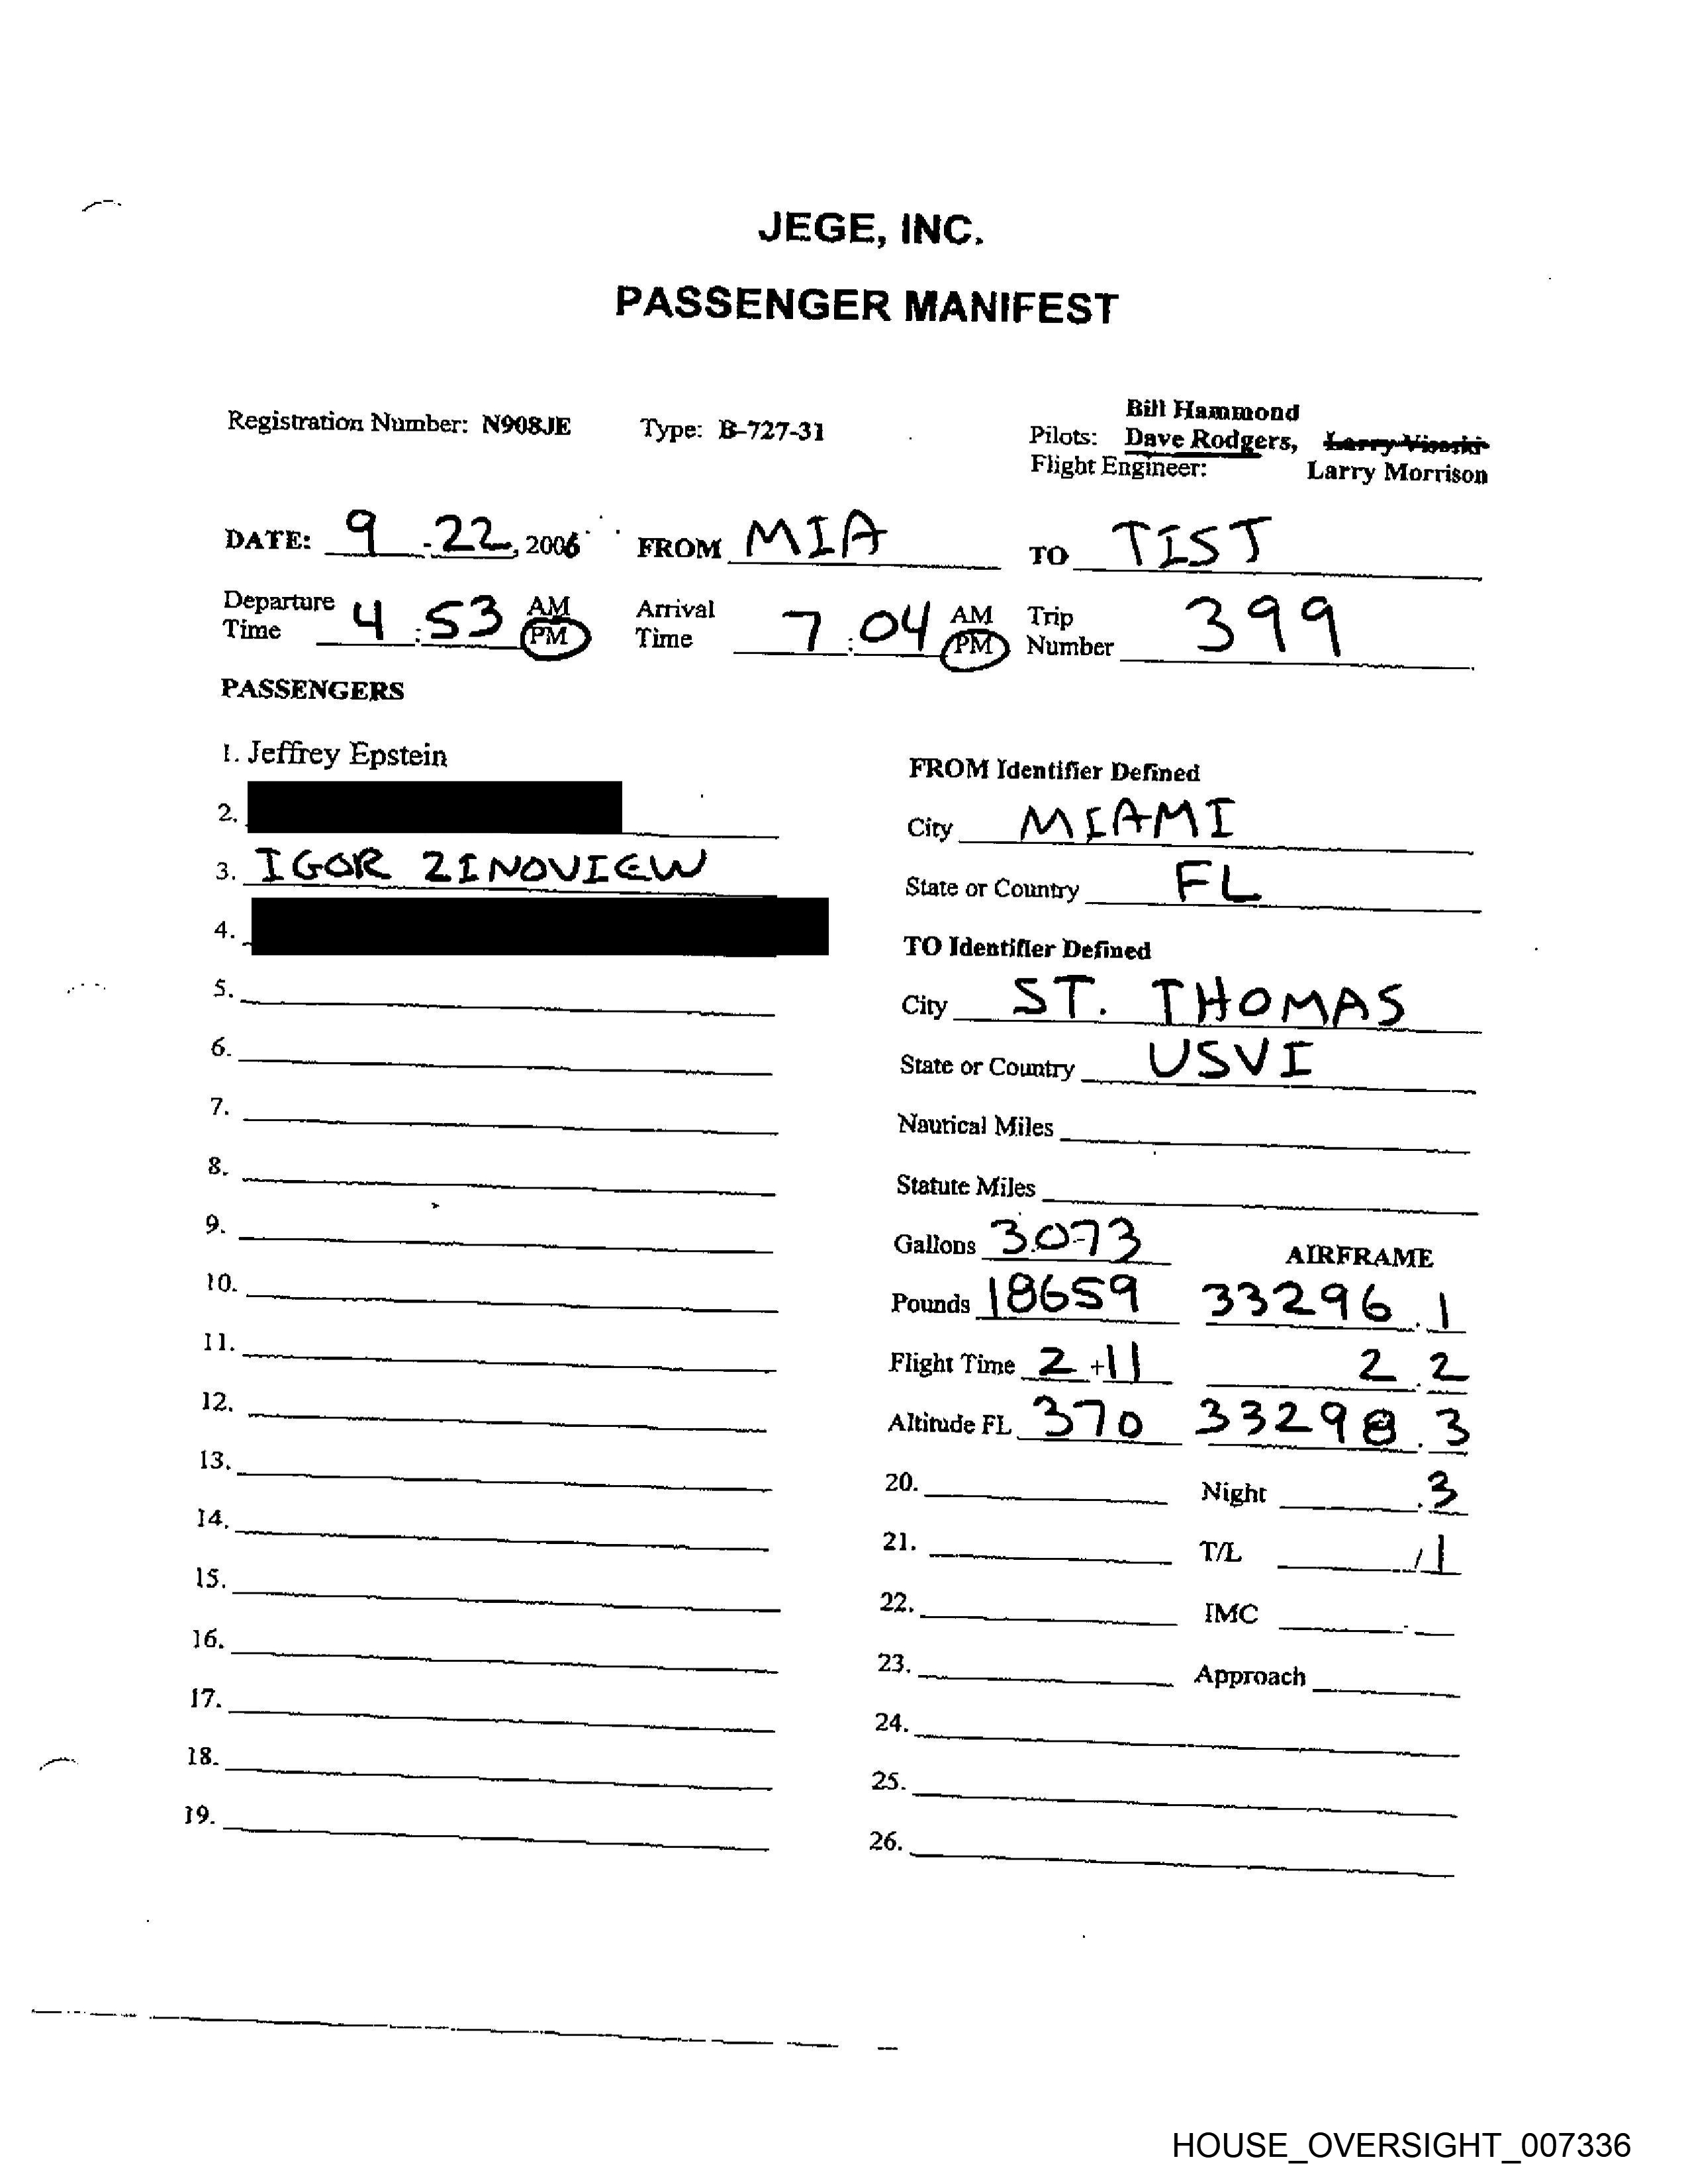 JEGE, INC.
PASSENGER MANIFEST
Bill Hammond
Registration Number: N908JE Type: B-727-31 Pilots: Dave Rodgers, Larry Visoski
Flight Engineer: Larry Morrison
DATE: 9 . 22, 2006 FROM MIA TO TIST
Departure Time 4:53 AM PM Arrival Time 7:04 AM PM Trip Number 399
PASSENGERS
1. Jeffrey Epstein
2.
3. IGOR ZINOVIEW
4.
5.
6.
7.
8.
9.
10.
11.
12.
13.
14.
15.
16.
17.
18.
19.
FROM Identifier Defined
City MIAMI
State or Country FL
TO Identifier Defined
City ST. THOMAS
State or Country USVI
Nautical Miles
Statute Miles
Gallons 3073 AIRFRAME
Pounds 18659 33296.1
Flight Time 2+11 2.2
Altitude FL 370 33298.3
20. Night .3
21. T/L /1
22. IMC
23. Approach
24.
25.
26.
HOUSE_OVERSIGHT_007336